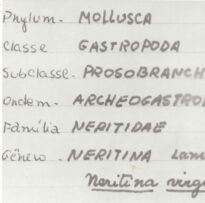 Phylum - MOLLUSCA
Classe GASTROPODA
Subclasse - PROSOBRANCH
Ordem - ARCHEOGASTRO
Família NERITIDAE
Gênero - NERITINA Lam
Neritina virg